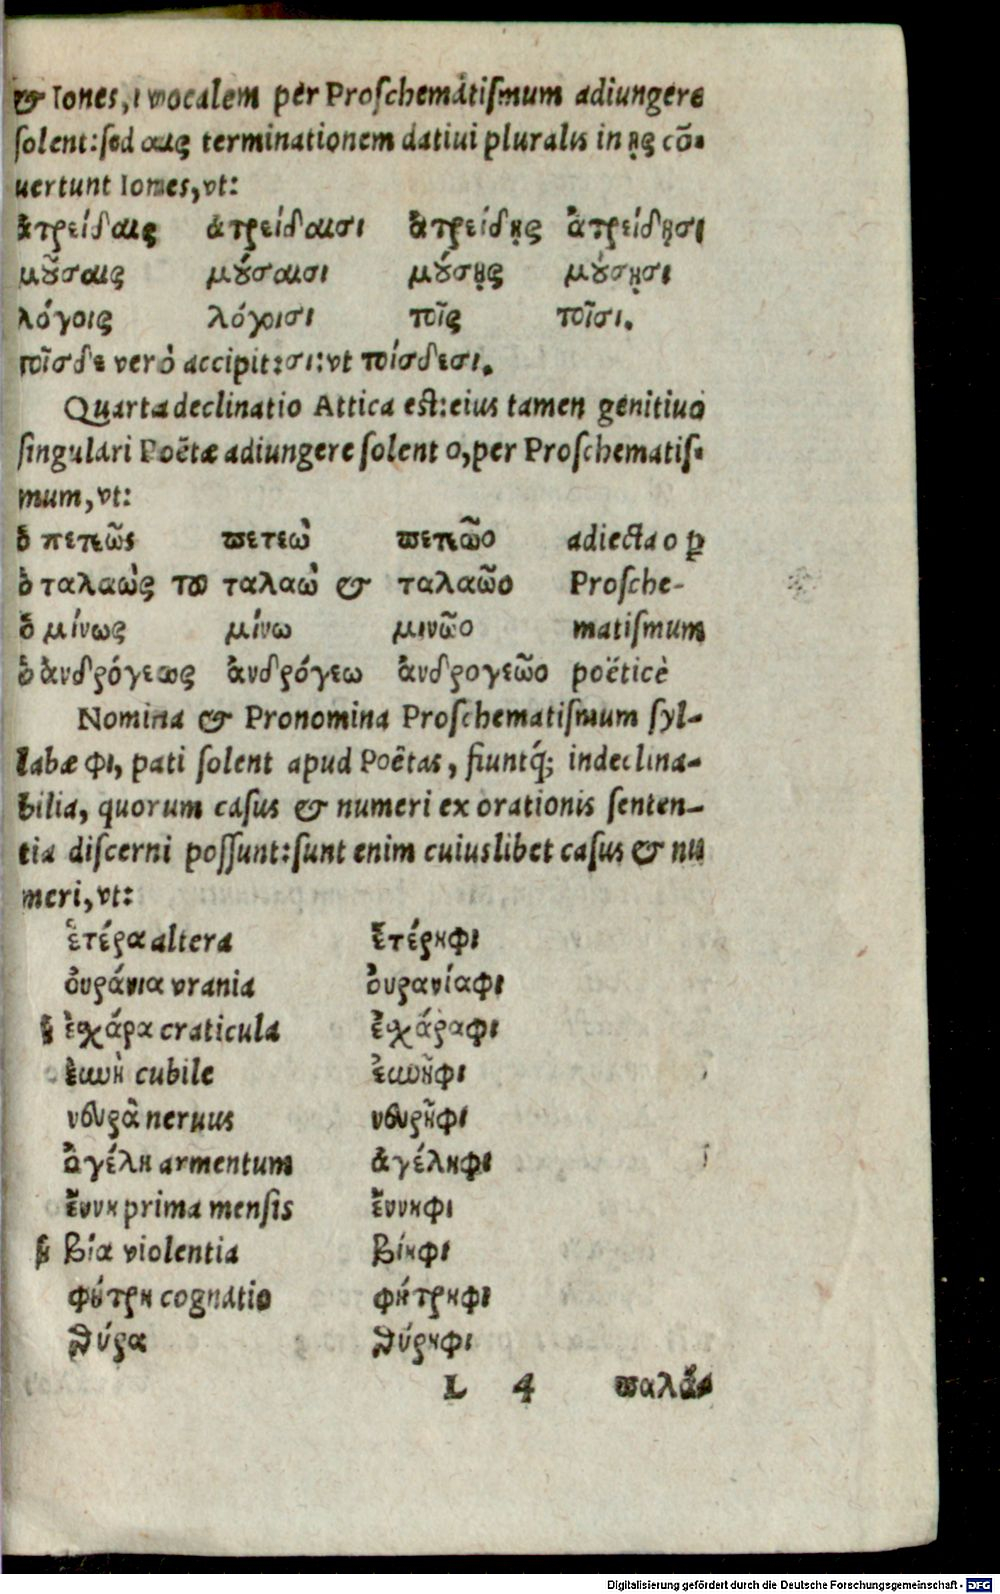 & Iones, ι vocalem per Proſchematiſmum adiungere
ſolent: ſed αις terminationem datiui pluralis in ῃς cõ-
uertunt Iones, vt:
ἀτρείδαις ἀτρείδαισι ἀτρείδῃς ἀτρείδῃσι
μȣ́σαις μȣ́σαισι μȣ́σῃς μȣ́σῃσι
λόγοις λόγοισι τοῖς τοῖσι.
τοῖσδε verò accipit: σι: vt τοίσδεσι.
Quarta declinatio Attica eſt: eius tamen genitiuo
ſingulari Poëtæ adiungere ſolent ο, per Proſchematiſ-
mum, vt:
ὁ πετεῶς πετεὼ πετεῶο adiecta ο ꝑ
ὁ ταλαὼς τοῦ ταλαὼ & ταλαῶο Proſche-
ὁ μίνως μίνω μινῶο matiſmum
ὁ ἀνδρόγεως ἀνδρόγεω ἀνδρογεῶο poëticè
Nomina & Pronomina Proſchematiſmum ſyl-
labæ φι, pati ſolent apud Poëtas, fiuntq́; indeclina-
bilia, quorum caſus & numeri ex orationis ſenten-
tia diſcerni poſſunt: ſunt enim cuiuslibet caſus & nu
meri, vt:
ἑτέρα altera ἑτέρηφι
ὀυράνια vrania ὀυρανίαφι
ἡ ἐσχάρα craticula ἐσχάραφι
ἐυνὴ cubile ἐυνῆφι
νευρὰ neruus νευρῆφι
ἀγέλη armentum ἀγέληφι
ἔννη prima menſis ἔννηφι
ἡ βία violentia βίηφι
φήτρη cognatio φήτρηφι
θύρα θύρηφι
L 4 παλά-
Digitalisierung gefördert durch die Deutsche Forschungsgemeinschaft - DFG